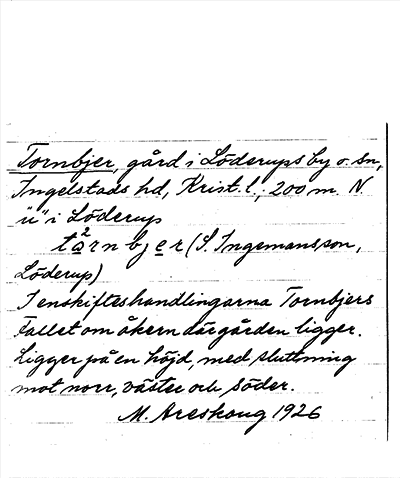 Tornbjer, gård i Löderups by o. sn,
Ingelstads hd, Krist. l.; 200 m. N
"ü" i Löderup
ta²rnbjer (S. Ingemansson,
Löderup)
I enskifteshandlingarna Tornbjers
Fallet om åkern där gården ligger.
Ligger på en höjd, med sluttning
mot norr, väster och söder.
M. Areskoug 1926